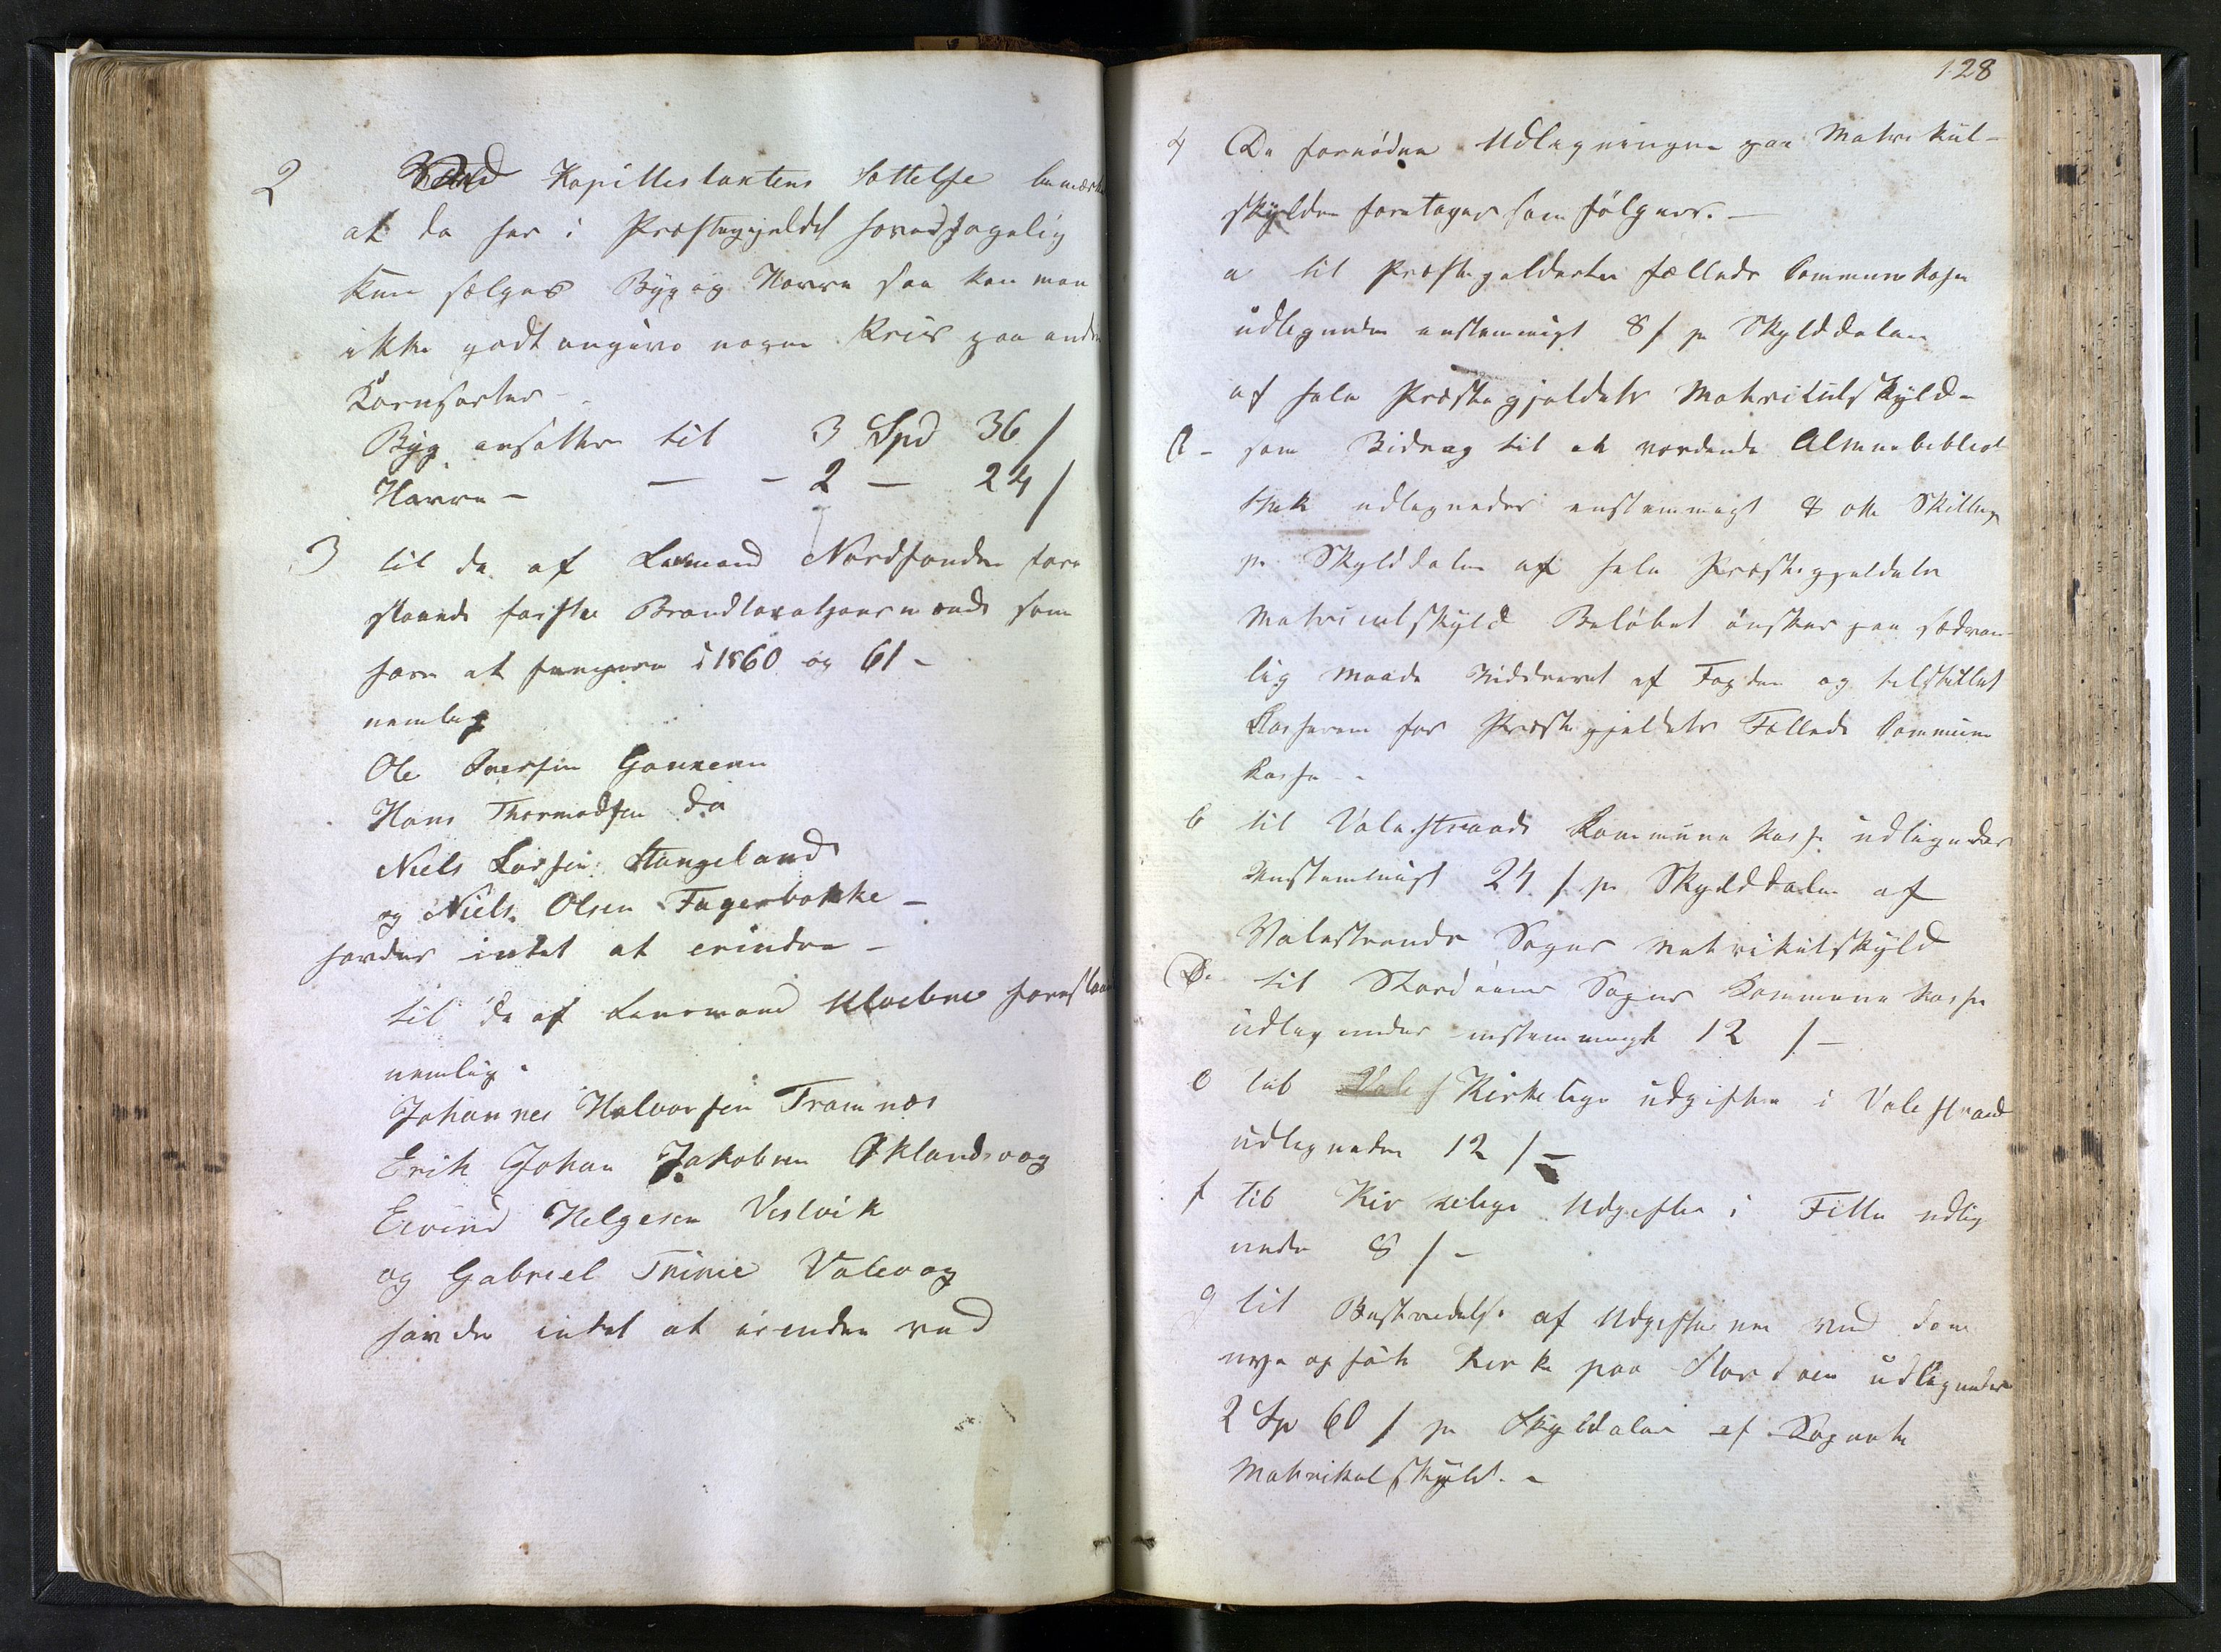 2 Ved Kapittelstaxtens Sættelse bemærkes
at da her i Præstegjeldet hovedsagelig
kun sælges Byg og Havre saa kan man
ikke godt angive nogen Priis paa andre
Kornsorter -
Byg ansættes til 3 Spd 36 /
Havre - — - 2 — 24 /
3 til de af Lensmand Nordhonden fore
slaaede første Brandtaxationsmænd som
have at fungere i 1860 og 61 -
nemlig
Ole Iversen
Hans Thormodsen do
Niels Larsen Stangeland
og Niels Olsen Fagerbakke -
havdes intet at erindre -
til de af Lensmand foreslaaede
nemlig
Johannes Halvorsen Framnæs
Erik Johan Jakobsen Øklandsvog
Eivind Helgesen Vestvik
og Gabriel Valevog
havdes intet at erindre ved
128
4 De fornødne Udligninger paa Matrikul-
skylden foretages som følger. -
a til Præstegjeldets fælleds Communekasse
udlignedes enstemmigt 8 / pr Skylddaler
af hele Præstegjeldets Matrikulskyld -
som Bidrag til et vordende Almuebiblio
thek udlignedes enstemmigt 8 otte Skilling
pr Skylddaler af hele Præstegjeldets
Matriculskyld Beløbet ønskes paa sædvan
lig Maade inddrevet af Fogden og tilstillet
Kassereren for Præstegjeldets Fælleds Commune
kasse -
til Valestrands Kommune kasse udlignedes
enstemmigt 24 / pr Skylddaler af
Valestrands Sogns Matrikulskyld
D. til Stordøens Sogns Kommune kasse
udlignedes enstemmigt 12 / -
e til Kirkelige udgifter i Valestrand
udlignedes 12 / -
f til Kirkelige Udgifter i Fitie udlig
nedes 8 / -
g til Bestridelse af Udgifterne ved den
nye opførte Kirke paa Stordøen udlignedes
2 Sp 60 / pr Skyldaler af Sognets
Matrikelskyld. -